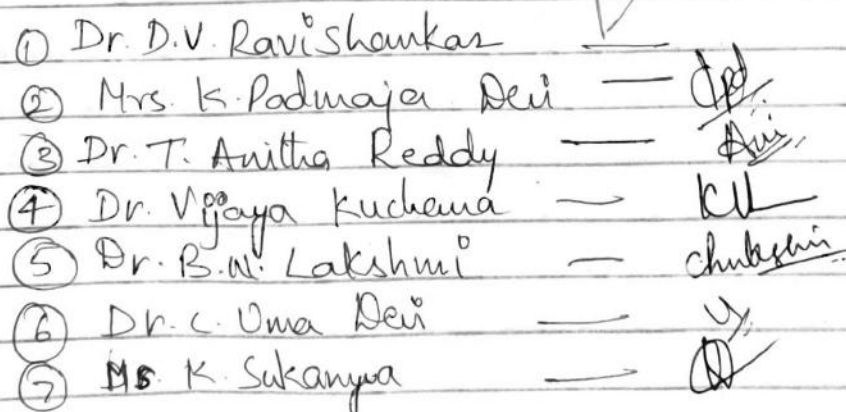 ① Dr. D.V. RaviShankar —
② Mrs. K. Padmaja Devi —
③ Dr. T. Anitha Reddy — Ani
④ Dr. Vijaya Kuchana —
⑤ Dr. B.N. Lakshmi —
⑥ Dr. C. Uma Devi —
⑦ Ms K. Sukanya —